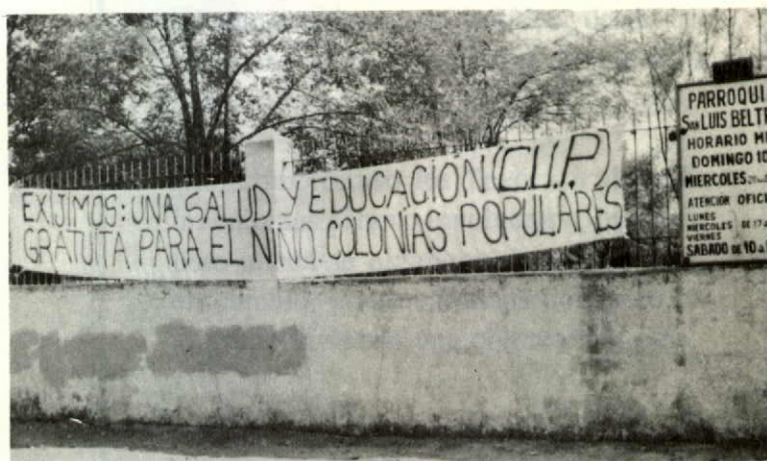 EXIJIMOS: UNA SALUD Y EDUCACIÓN (C.U.P)
GRATUITA PARA EL NIÑO. COLONIAS POPULARES
PARROQUI
SAN LUIS BELT
HORARIO
DOMINGO 10
MIERCOLES
ATENCION OFIC
LUNES
MIERCOLES DE 17
VIERNES
SABADO DE 10 a